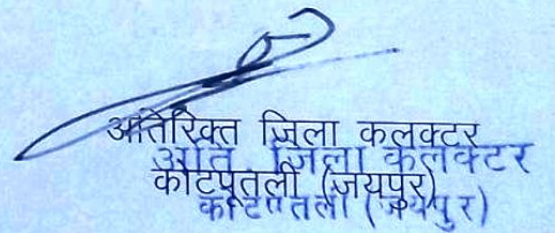 अतिरिक्त जिला कलक्टर
अति. जिला कलक्टर
कोटपूतली (जयपुर)
कोटपूतली (जयपुर)